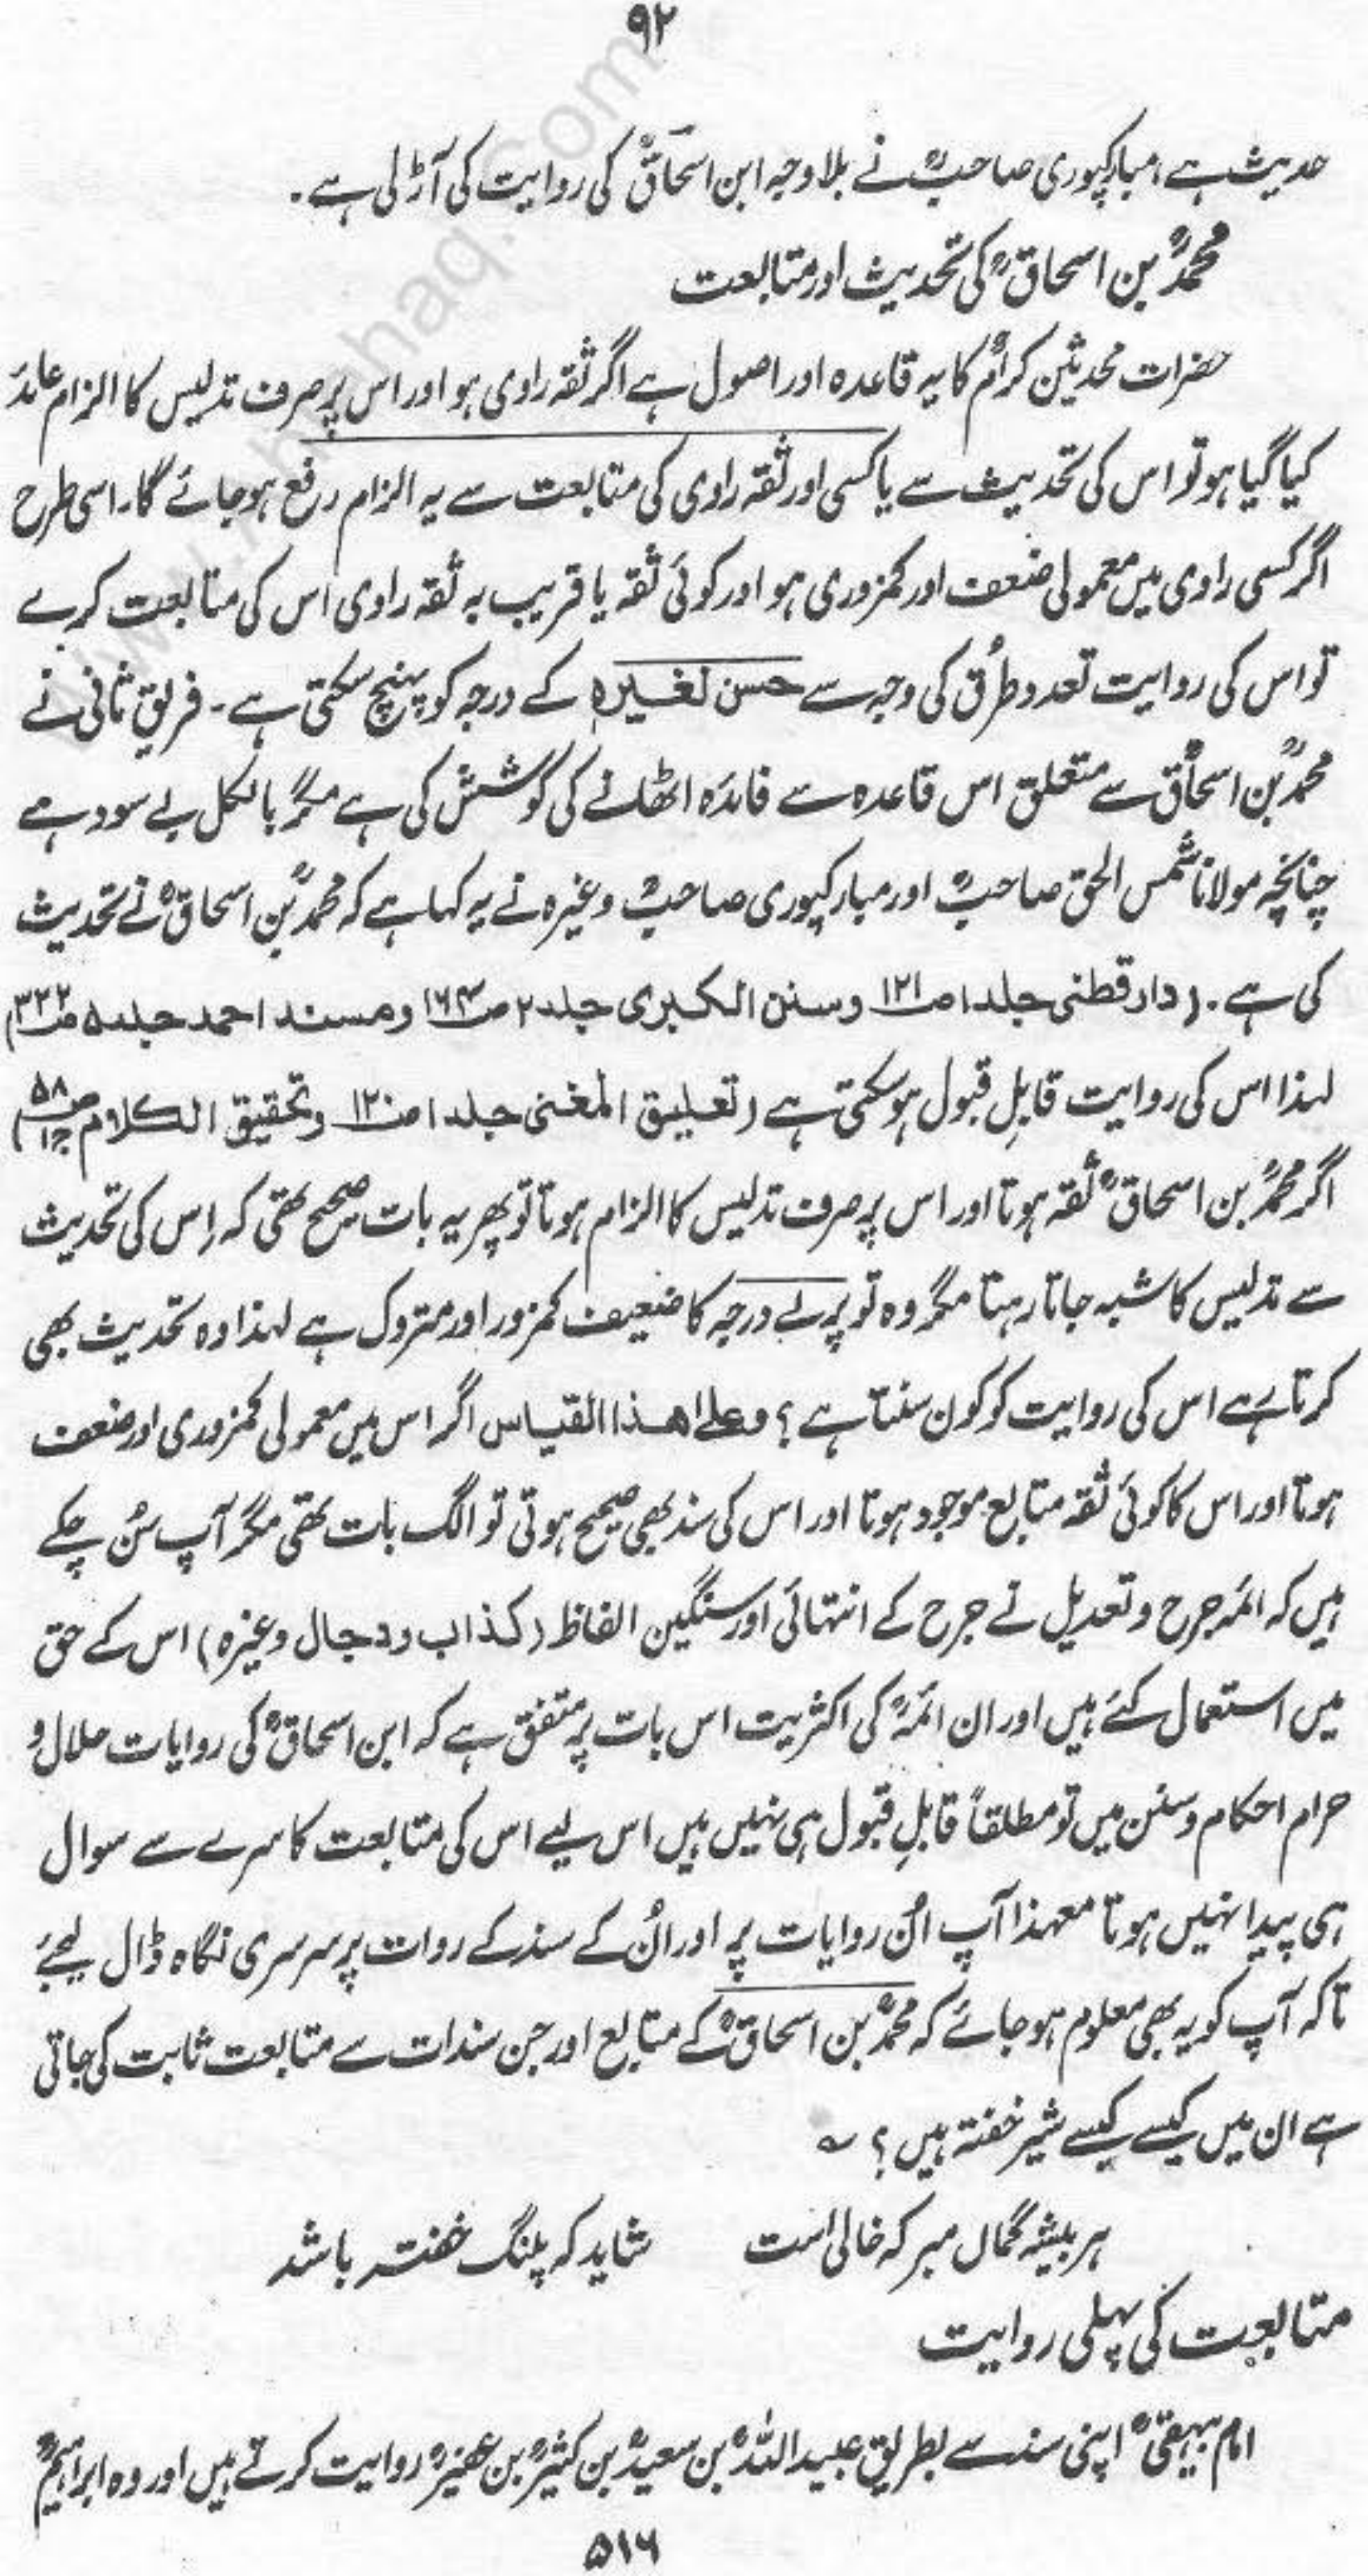 ۹۲
حدیث ہے مبارکپوری صاحبؒ نے بلاوجہ ابن اسحاقؒ کی روایت کی آڑ لی ہے۔
محمدؒ بن اسحاقؒ کی تحدیث اور متابعت
حضرات محدثین کرامؒ کا یہ قاعدہ اور اصول ہے اگر ثقہ راوی ہو اور اس پر صرف تدلیس کا الزام عائد
کیا گیا ہو تو اس کی تحدیث سے یا کسی اور ثقہ راوی کی متابعت سے یہ الزام رفع ہو جائے گا۔ اسی طرح
اگر کسی راوی میں معمولی ضعف اور کمزوری ہو اور کوئی ثقہ یا قریب بہ ثقہ راوی اس کی متابعت کرے
تو اس کی روایت تعدد طُرق کی وجہ سے حسن لغیرہ کے درجہ کو پہنچ سکتی ہے۔ فریق ثانی نے
محمدؒ بن اسحاقؒ سے متعلق اس قاعدہ سے فائدہ اٹھانے کی کوشش کی ہے مگر بالکل بے سود ہے
چنانچہ مولانا شمس الحق صاحبؒ اور مبارکپوری صاحبؒ وغیرہ نے یہ کہا ہے کہ محمدؒ بن اسحاقؒ نے تحدیث
کی ہے۔ (دار قطنی جلد ۱ ص۱۲۱ وسنن الکبریٰ جلد ۲ ص۱۶۴ ومسند احمد جلد ۵ ص۳۲۲)
لہذا اس کی روایت قابلِ قبول ہو سکتی ہے (تعلیق المغنی جلد ۱ ص۱۲۰ وتحقیق الکلام ص۵۸ ج۱)
اگر محمدؒ بن اسحاقؒ ثقہ ہوتا اور اس پر صرف تدلیس کا الزام ہوتا تو پھر یہ بات صحیح تھی کہ اِس کی تحدیث
سے تدلیس کا شبہ جاتا رہتا مگر وہ تو پرلے درجہ کا ضعیف کمزور اور متروک ہے لہذا وہ تحدیث بھی
کرتا رہے اس کی روایت کو کون سنتا ہے؟ وعلیٰ ھذا القیاس اگر اس میں معمولی کمزوری اور ضعف
ہوتا اور اس کا کوئی ثقہ متابع موجود ہوتا اور اس کی سند بھی صحیح ہوتی تو الگ بات تھی مگر آپ سُن چکے
ہیں کہ ائمہ جرح وتعدیل نے جرح کے انتہائی اور سنگین الفاظ (کذاب ودجال وغیرہ) اس کے حق
میں استعمال کئے ہیں اور ان ائمہؒ کی اکثریت اس بات پر متفق ہے کہ ابن اسحاقؒ کی روایات حلال و
حرام احکام وسنن میں تو مطلقاً قابلِ قبول ہی نہیں ہیں اس لیے اس کی متابعت کا سرے سے سوال
ہی پیدا نہیں ہوتا معہذا آپ اُن روایات پر اور اُن کے سند کے روات پر سرسری نگاہ ڈال لیجئے
تاکہ آپ کو یہ بھی معلوم ہو جائے کہ محمدؒ بن اسحاقؒ کے متابع اور جن سندات سے متابعت ثابت کی جاتی
ہے ان میں کیسے کیسے شیر خفتہ ہیں؟ ؎
ہر بیشہ گمان مبر کہ خالی است شاید کہ پلنگ خفتہ باشد
متابعت کی پہلی روایت
امام بیہقیؒ اپنی سند سے بطریق عبید اللہؒ بن سعیدؒ بن کثیرؒ بن عفیرؒ روایت کرتے ہیں اور وہ ابراہیمؒ
۵۱۶